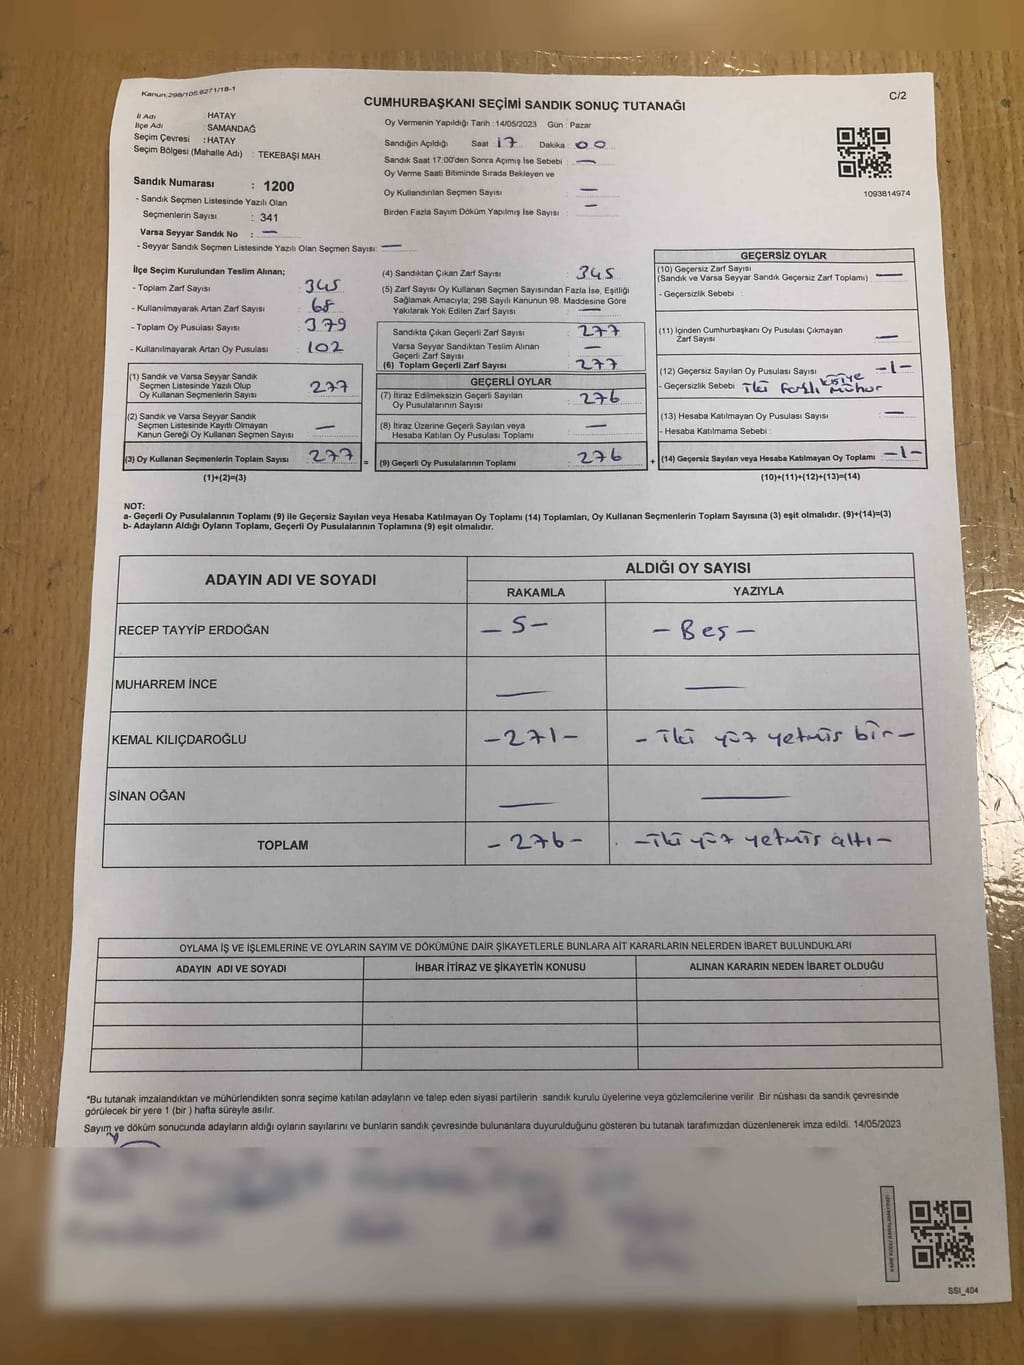 Kanun:298/105;6271/18-1
CUMHURBAŞKANI SEÇİMİ SANDIK SONUÇ TUTANAĞI
C/2
İl Adı : HATAY
İlçe Adı : SAMANDAĞ
Seçim Çevresi : HATAY
Seçim Bölgesi (Mahalle Adı) : TEKEBAŞI MAH.
Oy Vermenin Yapıldığı Tarih :14/05/2023 Gün : Pazar
Sandığın Açıldığı Saat : 17 Dakika : 00
Sandık Saat 17:00'den Sonra Açımış İse Sebebi : —
Oy Verme Saati Bitiminde Sırada Bekleyen ve
Oy Kullandırılan Seçmen Sayısı : —
Birden Fazla Sayım Döküm Yapılmış İse Sayısı : —
1093814974
Sandık Numarası : 1200
- Sandık Seçmen Listesinde Yazılı Olan
Seçmenlerin Sayısı : 341
Varsa Seyyar Sandık No : —
- Seyyar Sandık Seçmen Listesinde Yazılı Olan Seçmen Sayısı: —
İlçe Seçim Kurulundan Teslim Alınan;
- Toplam Zarf Sayısı : 345
- Kullanılmayarak Artan Zarf Sayısı : 68
- Toplam Oy Pusulası Sayısı : 379
- Kullanılmayarak Artan Oy Pusulası : 102
(1) Sandık ve Varsa Seyyar Sandık
Seçmen Listesinde Yazılı Olup
Oy Kullanan Seçmenlerin Sayısı : 277
(2) Sandık ve Varsa Seyyar Sandık
Seçmen Listesinde Kayıtlı Olmayan
Kanun Gereği Oy Kullanan Seçmen Sayısı : —
(3) Oy Kullanan Seçmenlerin Toplam Sayısı : 277
(1)+(2)=(3)
(4) Sandıktan Çıkan Zarf Sayısı : 345
(5) Zarf Sayısı Oy Kullanan Seçmen Sayısından Fazla İse, Eşitliği
Sağlamak Amacıyla; 298 Sayılı Kanunun 98. Maddesine Göre
Yakılarak Yok Edilen Zarf Sayısı : —
Sandıkta Çıkan Geçerli Zarf Sayısı : 277
Varsa Seyyar Sandıktan Teslim Alınan
Geçerli Zarf Sayısı : —
(6) Toplam Geçerli Zarf Sayısı : 277
GEÇERLİ OYLAR
(7) İtiraz Edilmeksizin Geçerli Sayılan
Oy Pusulalarının Sayısı : 276
(8) İtiraz Üzerine Geçerli Sayılan veya
Hesaba Katılan Oy Pusulası Toplamı : —
= (9) Geçerli Oy Pusulalarının Toplamı : 276
GEÇERSİZ OYLAR
(10) Geçersiz Zarf Sayısı
(Sandık ve Varsa Seyyar Sandık Geçersiz Zarf Toplamı) : —
- Geçersizlik Sebebi :
(11) İçinden Cumhurbaşkanı Oy Pusulası Çıkmayan
Zarf Sayısı : —
(12) Geçersiz Sayılan Oy Pusulası Sayısı : -1-
- Geçersizlik Sebebi : İki farklı kişiye mühür
(13) Hesaba Katılmayan Oy Pusulası Sayısı : —
- Hesaba Katılmama Sebebi :
+ (14) Geçersiz Sayılan veya Hesaba Katılmayan Oy Toplamı : -1-
(10)+(11)+(12)+(13)=(14)
NOT:
a- Geçerli Oy Pusulalarının Toplamı (9) ile Geçersiz Sayılan veya Hesaba Katılmayan Oy Toplamı (14) Toplamları, Oy Kullanan Seçmenlerin Toplam Sayısına (3) eşit olmalıdır. (9)+(14)=(3)
b- Adayların Aldığı Oyların Toplamı, Geçerli Oy Pusulalarının Toplamına (9) eşit olmalıdır.
ADAYIN ADI VE SOYADI
ALDIĞI OY SAYISI
RAKAMLA YAZIYLA
RECEP TAYYİP ERDOĞAN -5- -Beş-
MUHARREM İNCE — —
KEMAL KILIÇDAROĞLU -271- -İki yüz yetmiş bir-
SİNAN OĞAN — —
TOPLAM -276- -İki yüz yetmiş altı-
OYLAMA İŞ VE İŞLEMLERİNE VE OYLARIN SAYIM VE DÖKÜMÜNE DAİR ŞİKAYETLERLE BUNLARA AİT KARARLARIN NELERDEN İBARET BULUNDUKLARI
ADAYIN ADI VE SOYADI İHBAR İTİRAZ VE ŞİKAYETİN KONUSU ALINAN KARARIN NEDEN İBARET OLDUĞU
*Bu tutanak imzalandıktan ve mühürlendikten sonra seçime katılan adayların ve talep eden siyasi partilerin sandık kurulu üyelerine veya gözlemcilerine verilir .Bir nüshası da sandık çevresinde
görülecek bir yere 1 (bir ) hafta süreyle asılır.
Sayım ve döküm sonucunda adayların aldığı oyların sayılarını ve bunların sandık çevresinde bulunanlara duyurulduğunu gösteren bu tutanak tarafımızdan düzenlenerek imza edildi. 14/05/2023
SSI_404